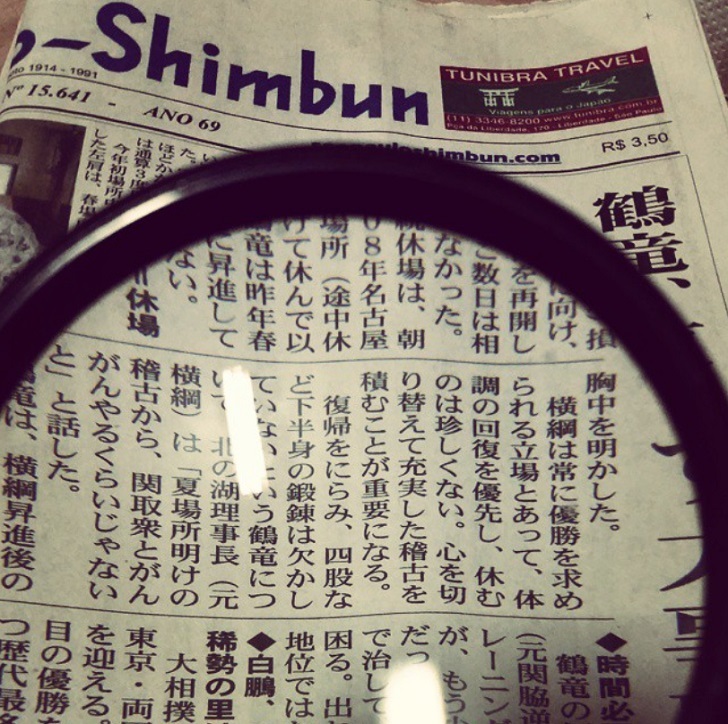 -Shimbun
1914 - 1991
Nº 15.641 - ANO 69
TUNIBRA TRAVEL
Viagens para o Japão
(11) 3346-8200 www.tunibra.com.br
Pça da Liberdade, 170 - Liberdade - São Paulo
shimbun.com
R$ 3,50
鶴竜、
損
に向け、
を再開し
数日は相
なかった。
続休場は、朝
08年名古屋
場所（途中休
けて休んで以
竜は昨年春
に昇進して
ない。
休場
た。
ほどか
は通算3度
今年初場所
した左肩は、春場
胸中を明かした。
横綱は常に優勝を求め
られる立場とあって、体
調の回復を優先し、休む
のは珍しくない。心を切
り替えて充実した稽古を
積むことが重要になる。
復帰をにらみ、四股な
ど下半身の鍛錬は欠かし
ていないという鶴竜につ
いて、北の湖理事長（元
横綱）は「夏場所明けの
稽古から、関取衆とがん
がんやるくらいじゃない
と」と話した。
鶴竜は、横綱昇進後の
◆時間必
鶴竜の
（元関脇逆
レーニン
が、もう
だっ
で治して
困る。出
地位では
◆白鵬、
稀勢の里
大相撲
東京・両
を迎える。
目の優勝
つ歴代最多